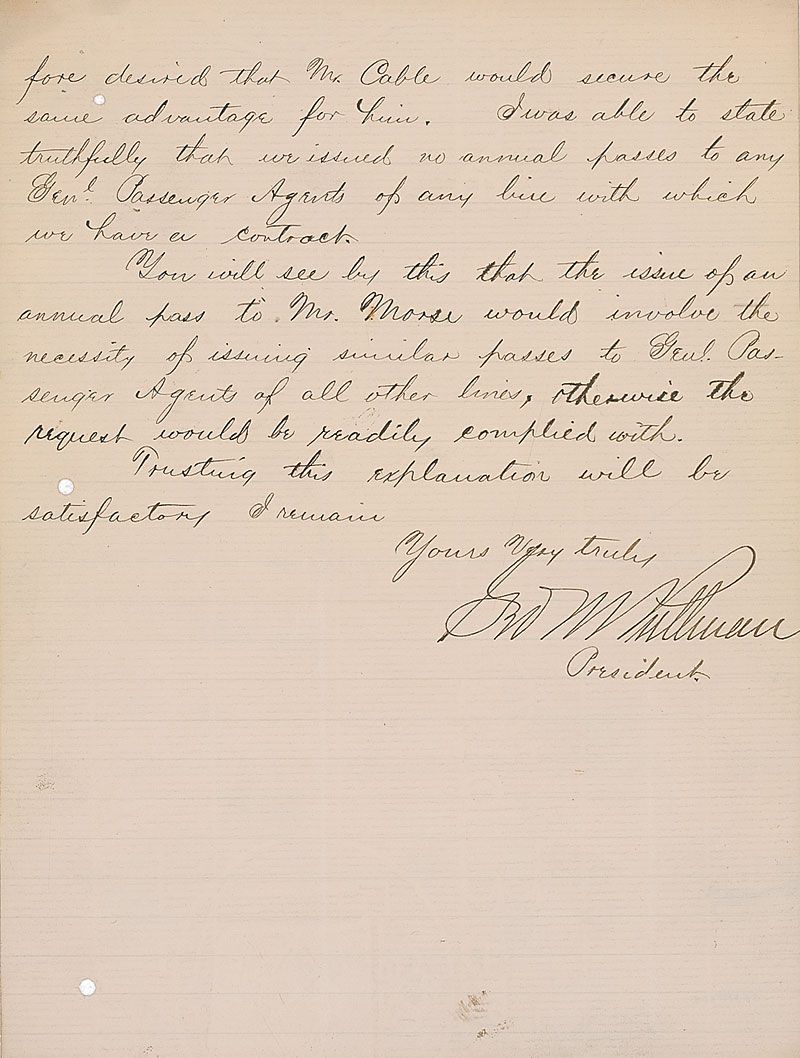 fore desired that Mr. Cable would secure the
same advantage for him. I was able to state
truthfully that we issued no annual passes to any
Genl. Passenger Agents of any line with which
we have a contract.
You will see by this that the issue of an
annual pass to Mr. Morse would involve the
necessity of issuing similar passes to Genl. Pas-
senger Agents of all other lines, otherwise the
request would be readily complied with.
Trusting this explanation will be
satisfactory I remain
Yours Very truly
Geo M Pullman
President.